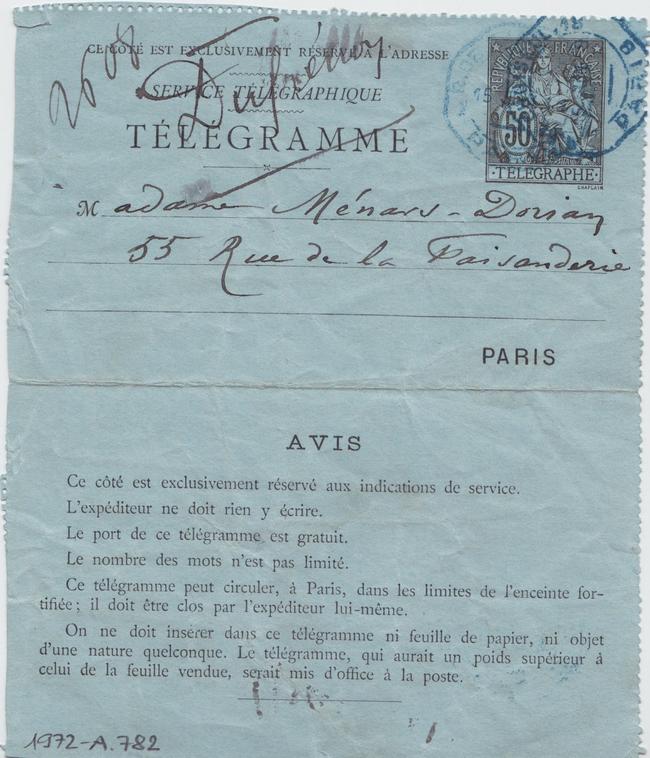 CE CÔTÉ EST EXCLUSIVEMENT RÉSERVÉ A L'ADRESSE
SERVICE TÉLÉGRAPHIQUE
TÉLÉGRAMME
RÉPUBLIQUE FRANÇAISE
50
TÉLÉGRAPHE
CHAPLAIN
Madame Ménars-Dorian
55 Rue de la Faisanderie
PARIS
AVIS
Ce côté est exclusivement réservé aux indications de service.
L'expéditeur ne doit rien y écrire.
Le port de ce télégramme est gratuit.
Le nombre des mots n'est pas limité.
Ce télégramme peut circuler, à Paris, dans les limites de l'enceinte for-
tifiée; il doit être clos par l'expéditeur lui-même.
On ne doit insérer dans ce télégramme ni feuille de papier, ni objet
d'une nature quelconque. Le télégramme, qui aurait un poids supérieur à
celui de la feuille vendue, serait mis d'office à la poste.
1972-A.782